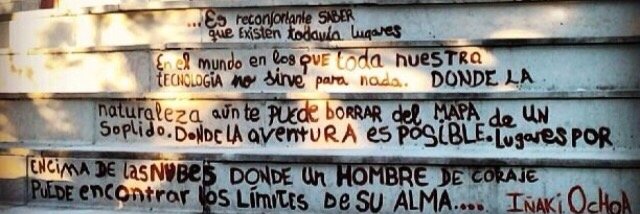 ...Es reconfortante SABER
que EXISTEN todavía lugares
En el mundo en los QUE toda nuestra
TECNOLOGÍA no sirve para nada. DONDE LA
naturaleza aún te PUEDE BORRAR del MAPA de UN
SOPLIDO. DONDE LA AVENTURA es POSIBLE. Lugares POR
ENCIMA DE Las NUBES DONDE UN HOMBRE DE CORAJE
PUEDE encontrar los LÍMITES DE SU ALMA.... IÑAKI OCHOA